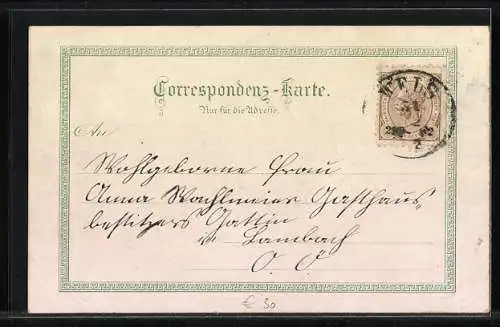 Correspondenz-Karte.
Nur für die Adresse.
WELS
An
Wohlgeborne Frau
Anna Wachlmeier Gasthaus
besitzers Gattin
in Lambach
O. Ö.
€ 30